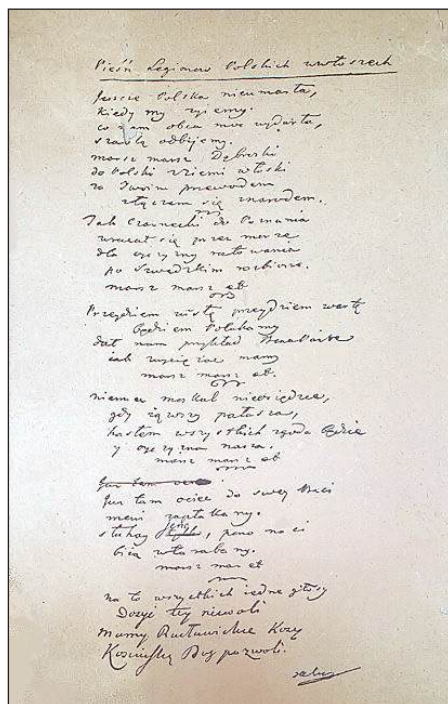 Pieśń Legionow Polskich wewłoszech
Jeszcze Polska nieumarła,
kiedy my żyiemy.
co nam obca moc wydarła,
szablą odbijemy.
marsz marsz Dąbrowski
do Polski z ziemi włoski
za Twoim przewodem
złączem się z narodem.
Jak Czarnecki do Poznania
wracał się przez morze
dla oyczyzny ratowania
po Szwedzkim rozbiorze.
marsz marsz et
Przejdziem wisłę przejdziem wartę
będziem Polakamy
dał nam przykład Bonaparte
jak zwyciężać mamy
marsz marsz et.
niemiec moskal nieosiędzie,
gdy iąwszy pałasza,
hasłem wszystkich zgoda będzie
y oyczyzna nasza.
marsz marsz et
Juz tam ociec do swey Basi
mowi zapłakany.
słuchay jeno, pono nasi
biią w tarabany.
marsz mar et
na to wszystkich iedne głosy
Dosyć tey niewoli
mamy Racławickie Kosy
Kosciuszkę Bog pozwoli.